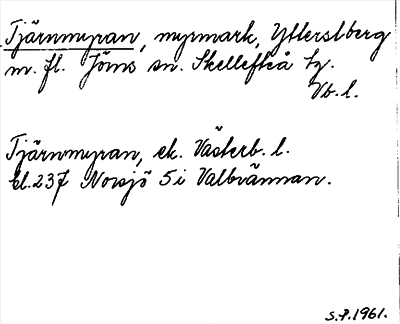 Tjärnmyran, myrmark, Ytterstberg
m. fl. Jörns sn. Skellefteå tg.
Vb. l.
Tjärnmyran, ek. Västerb. l.
bl. 237 Norsjö 5 i Valbrännan.
S.P. 1961.